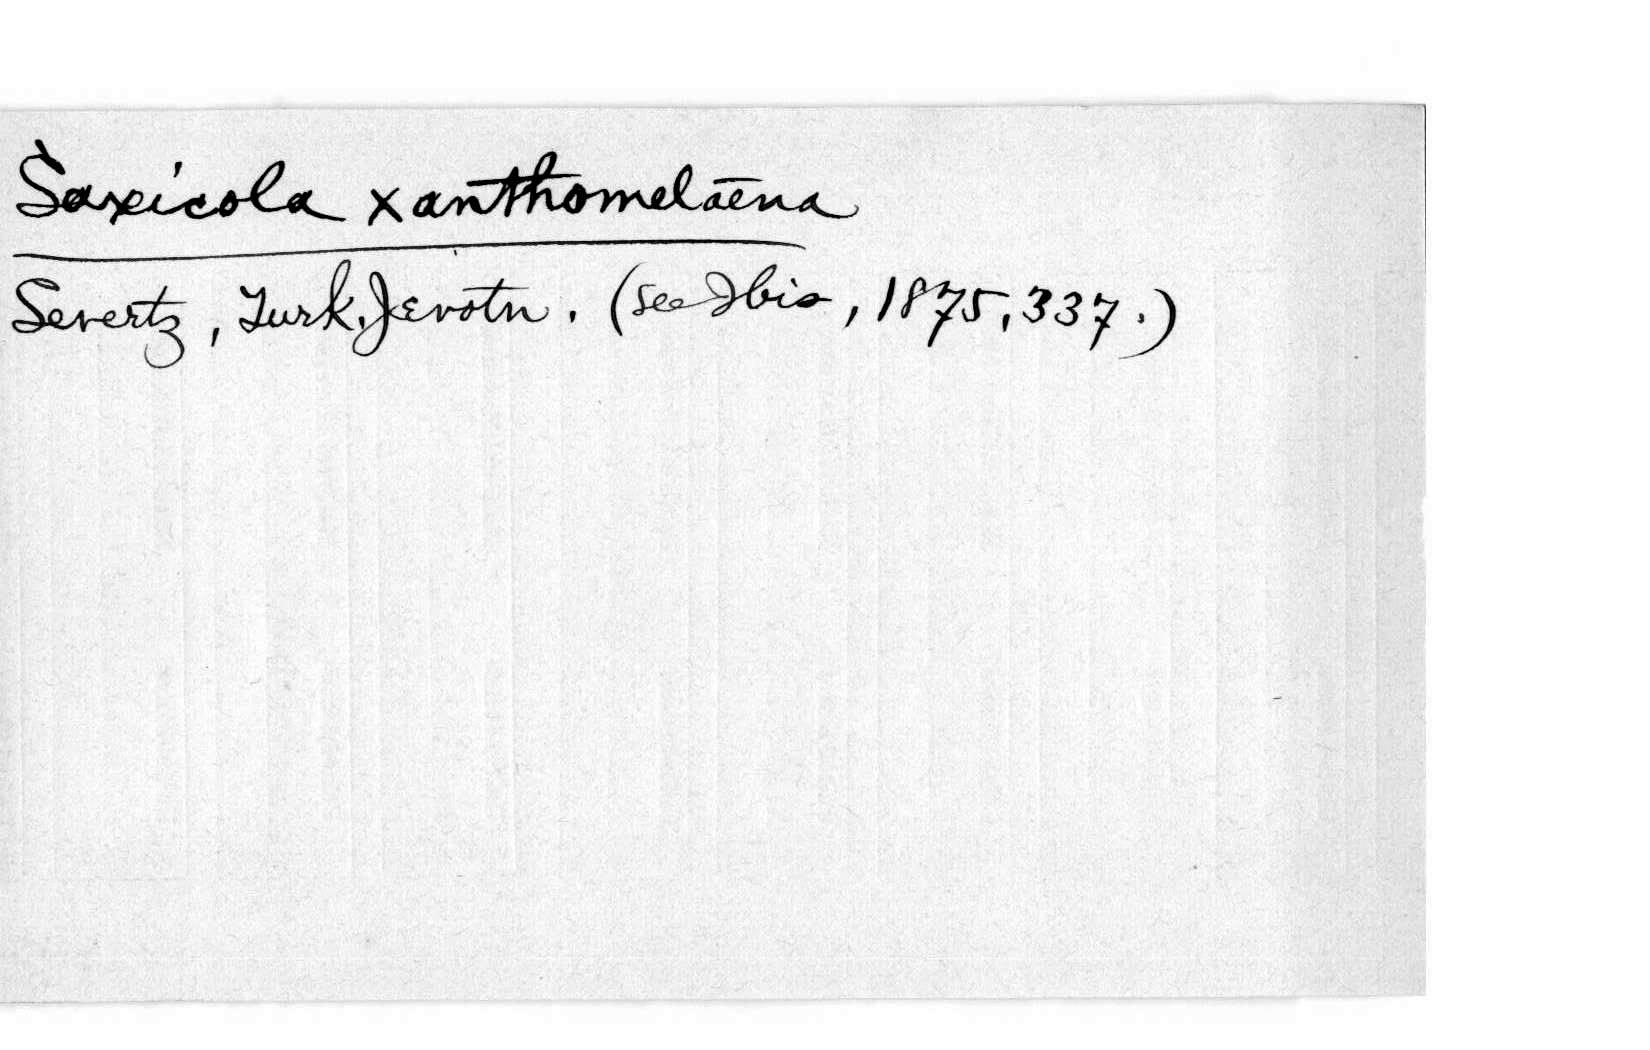 Saxicola xanthomelaena
Severtz, Turk. Jevotn. (see Ibis, 1875, 337.)